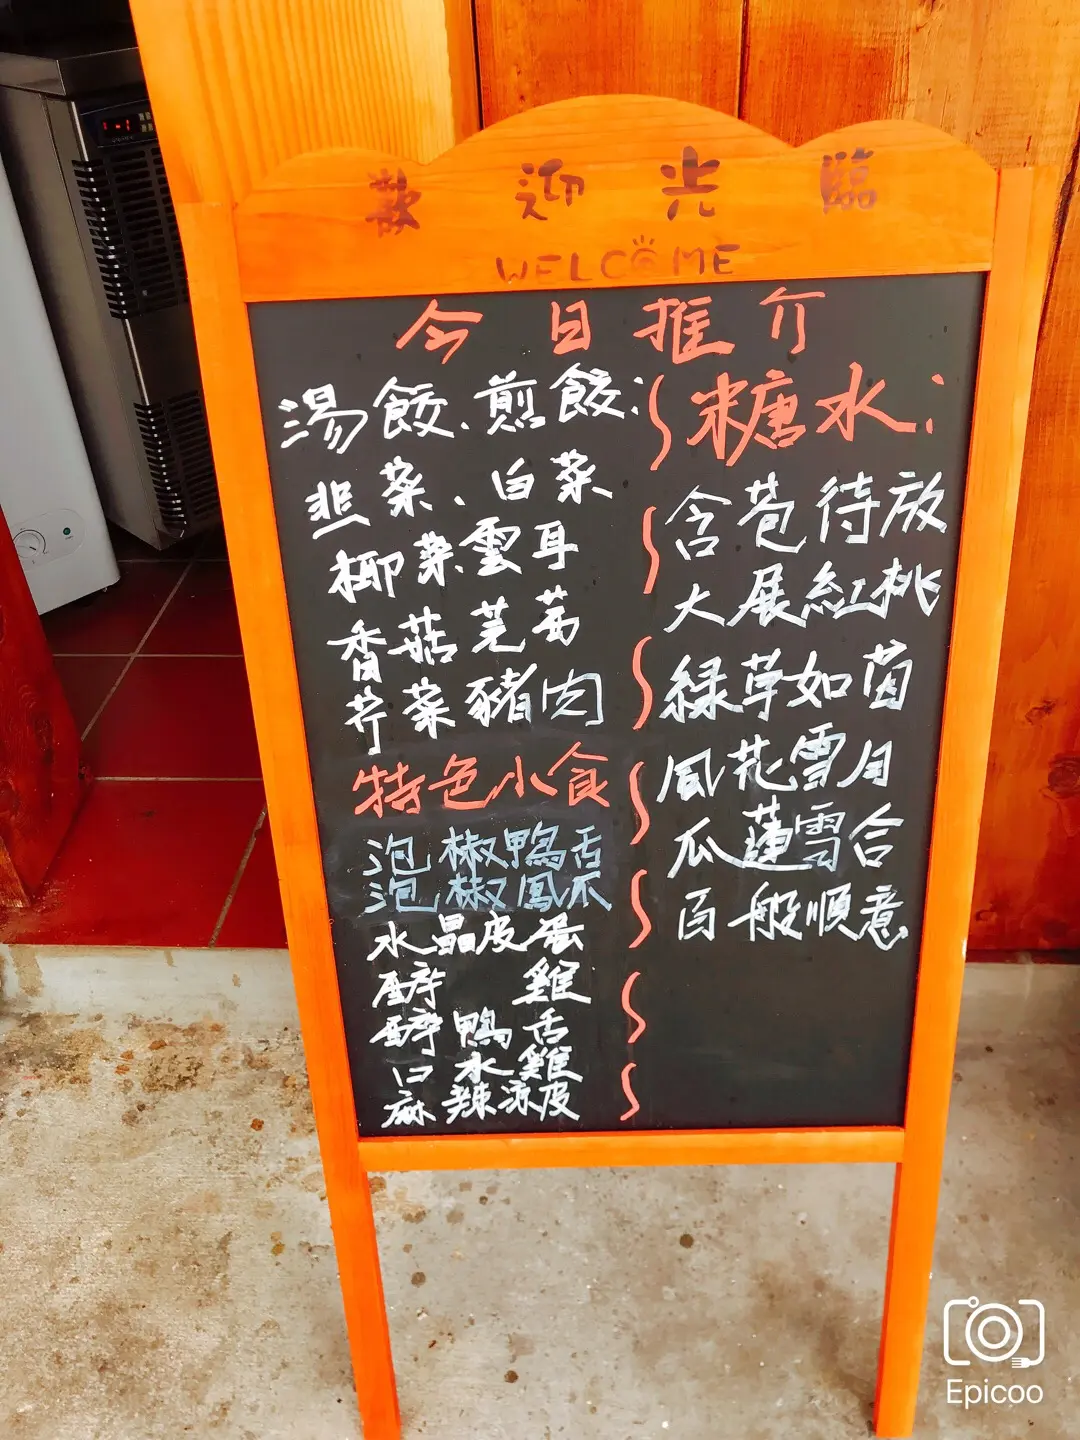 歡迎光臨
WELCOME
今日推介
湯餃、煎餃:
韭菜、白菜
椰菜雲耳
香菇芫茜
芹菜豬肉
特色小食
泡椒鴨舌
泡椒鳳爪
水晶皮蛋
醉雞
醉鴨舌
口水雞
麻辣涼皮
糖水:
含苞待放
大展紅桃
綠草如茵
風花雪月
瓜蓮雪合
百般順意
Epicoo